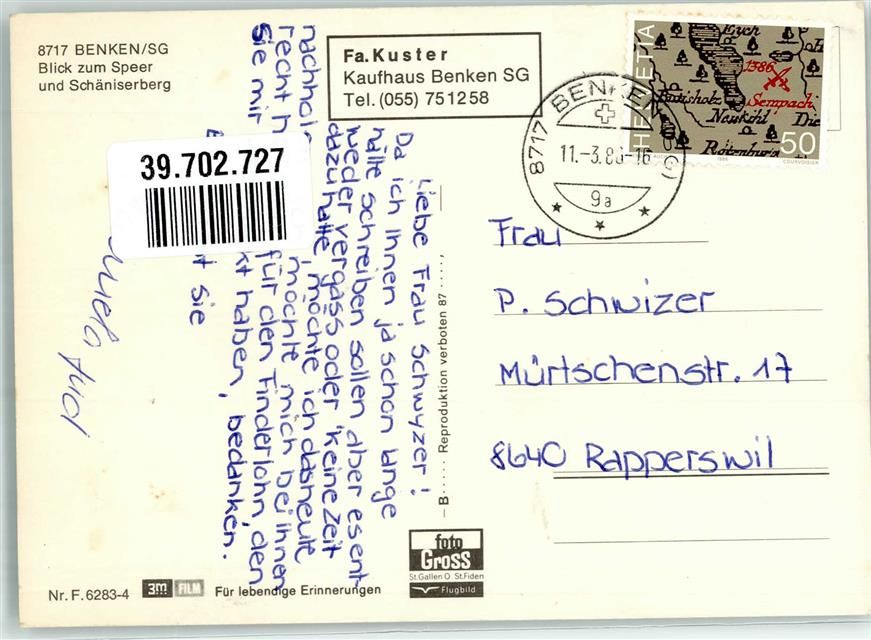 8717 BENKEN/SG
Blick zum Speer
und Schäniserberg
Fa. Kuster
Kaufhaus Benken SG
Tel. (055) 751258
HELVETIA
1386
Sempach
Rotenburg
50
COURVOISIER
8717 BENKEN (SG)
11.-3.8 -16
9a
39.702.727
Liebe Frau Schwyzer!
Da ich Ihnen ja schon lange
hätte schreiben sollen aber es ent-
weder vergass oder keine Zeit
dazu hatte, möchte ich das heute
nachhol
möchte mich bei ihnen
recht h
für den Finderlohn, den
Sie mir
kt haben, bedanken.
t Sie
Frau
P. Schwizer
Mürtschenstr. 17
8640 Rapperswil
– B ...... Reproduktion verboten 87 ......
foto
Gross
St. Gallen O St. Fiden
Flugbild
Nr. F. 6283-4
3M FILM
Für lebendige Erinnerungen